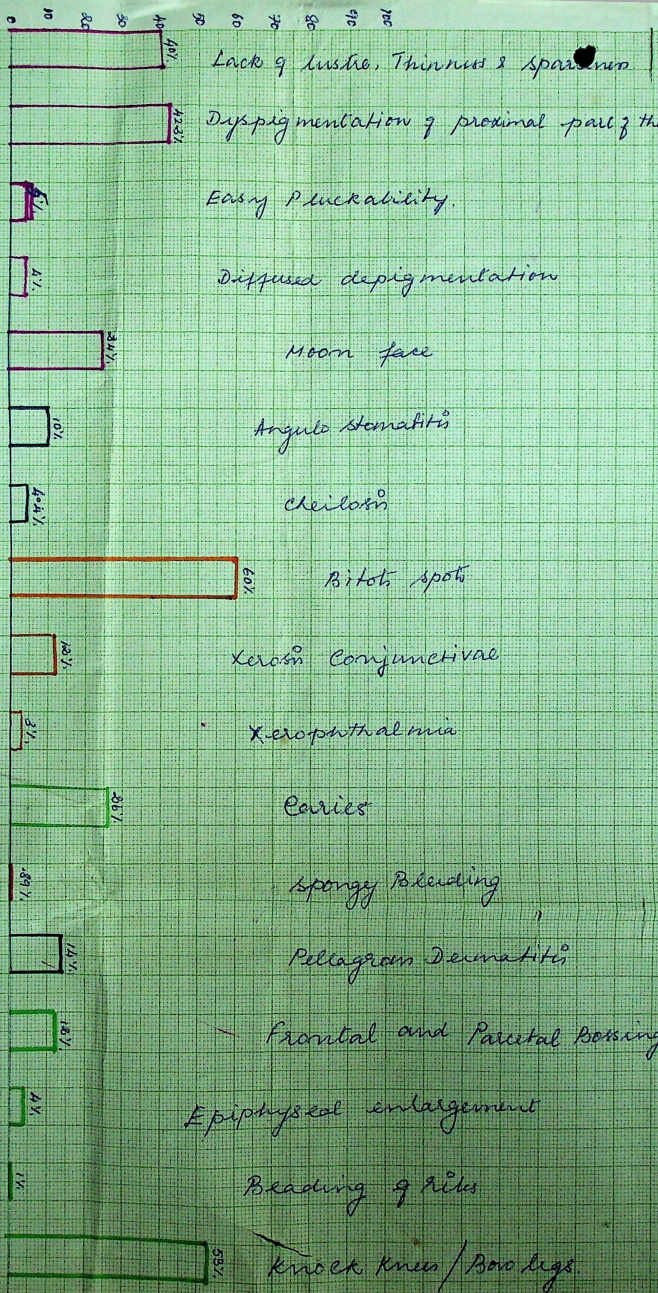 0 10 20 30 40 50 60 70 80 90 100
40% Lack of lustre, Thinness & sparseness
Dyspigmentation of proximal part of th
5% Easy Pluckability.
4% Diffused depigmentation
24% Moon face
10% Angulo stomatitis
4.4% Cheilosis
60% Bitots spots
12% Xerosis Conjunctivae
3% Xerophthalmia
26% Caries
.89% Spongy Bleeding
14% Pellagrous Dermatitis
12% Frontal and Parietal Bossing
4% Epiphyseal enlargement
1% Beading of ribs
53% Knock Knees / Bow legs.